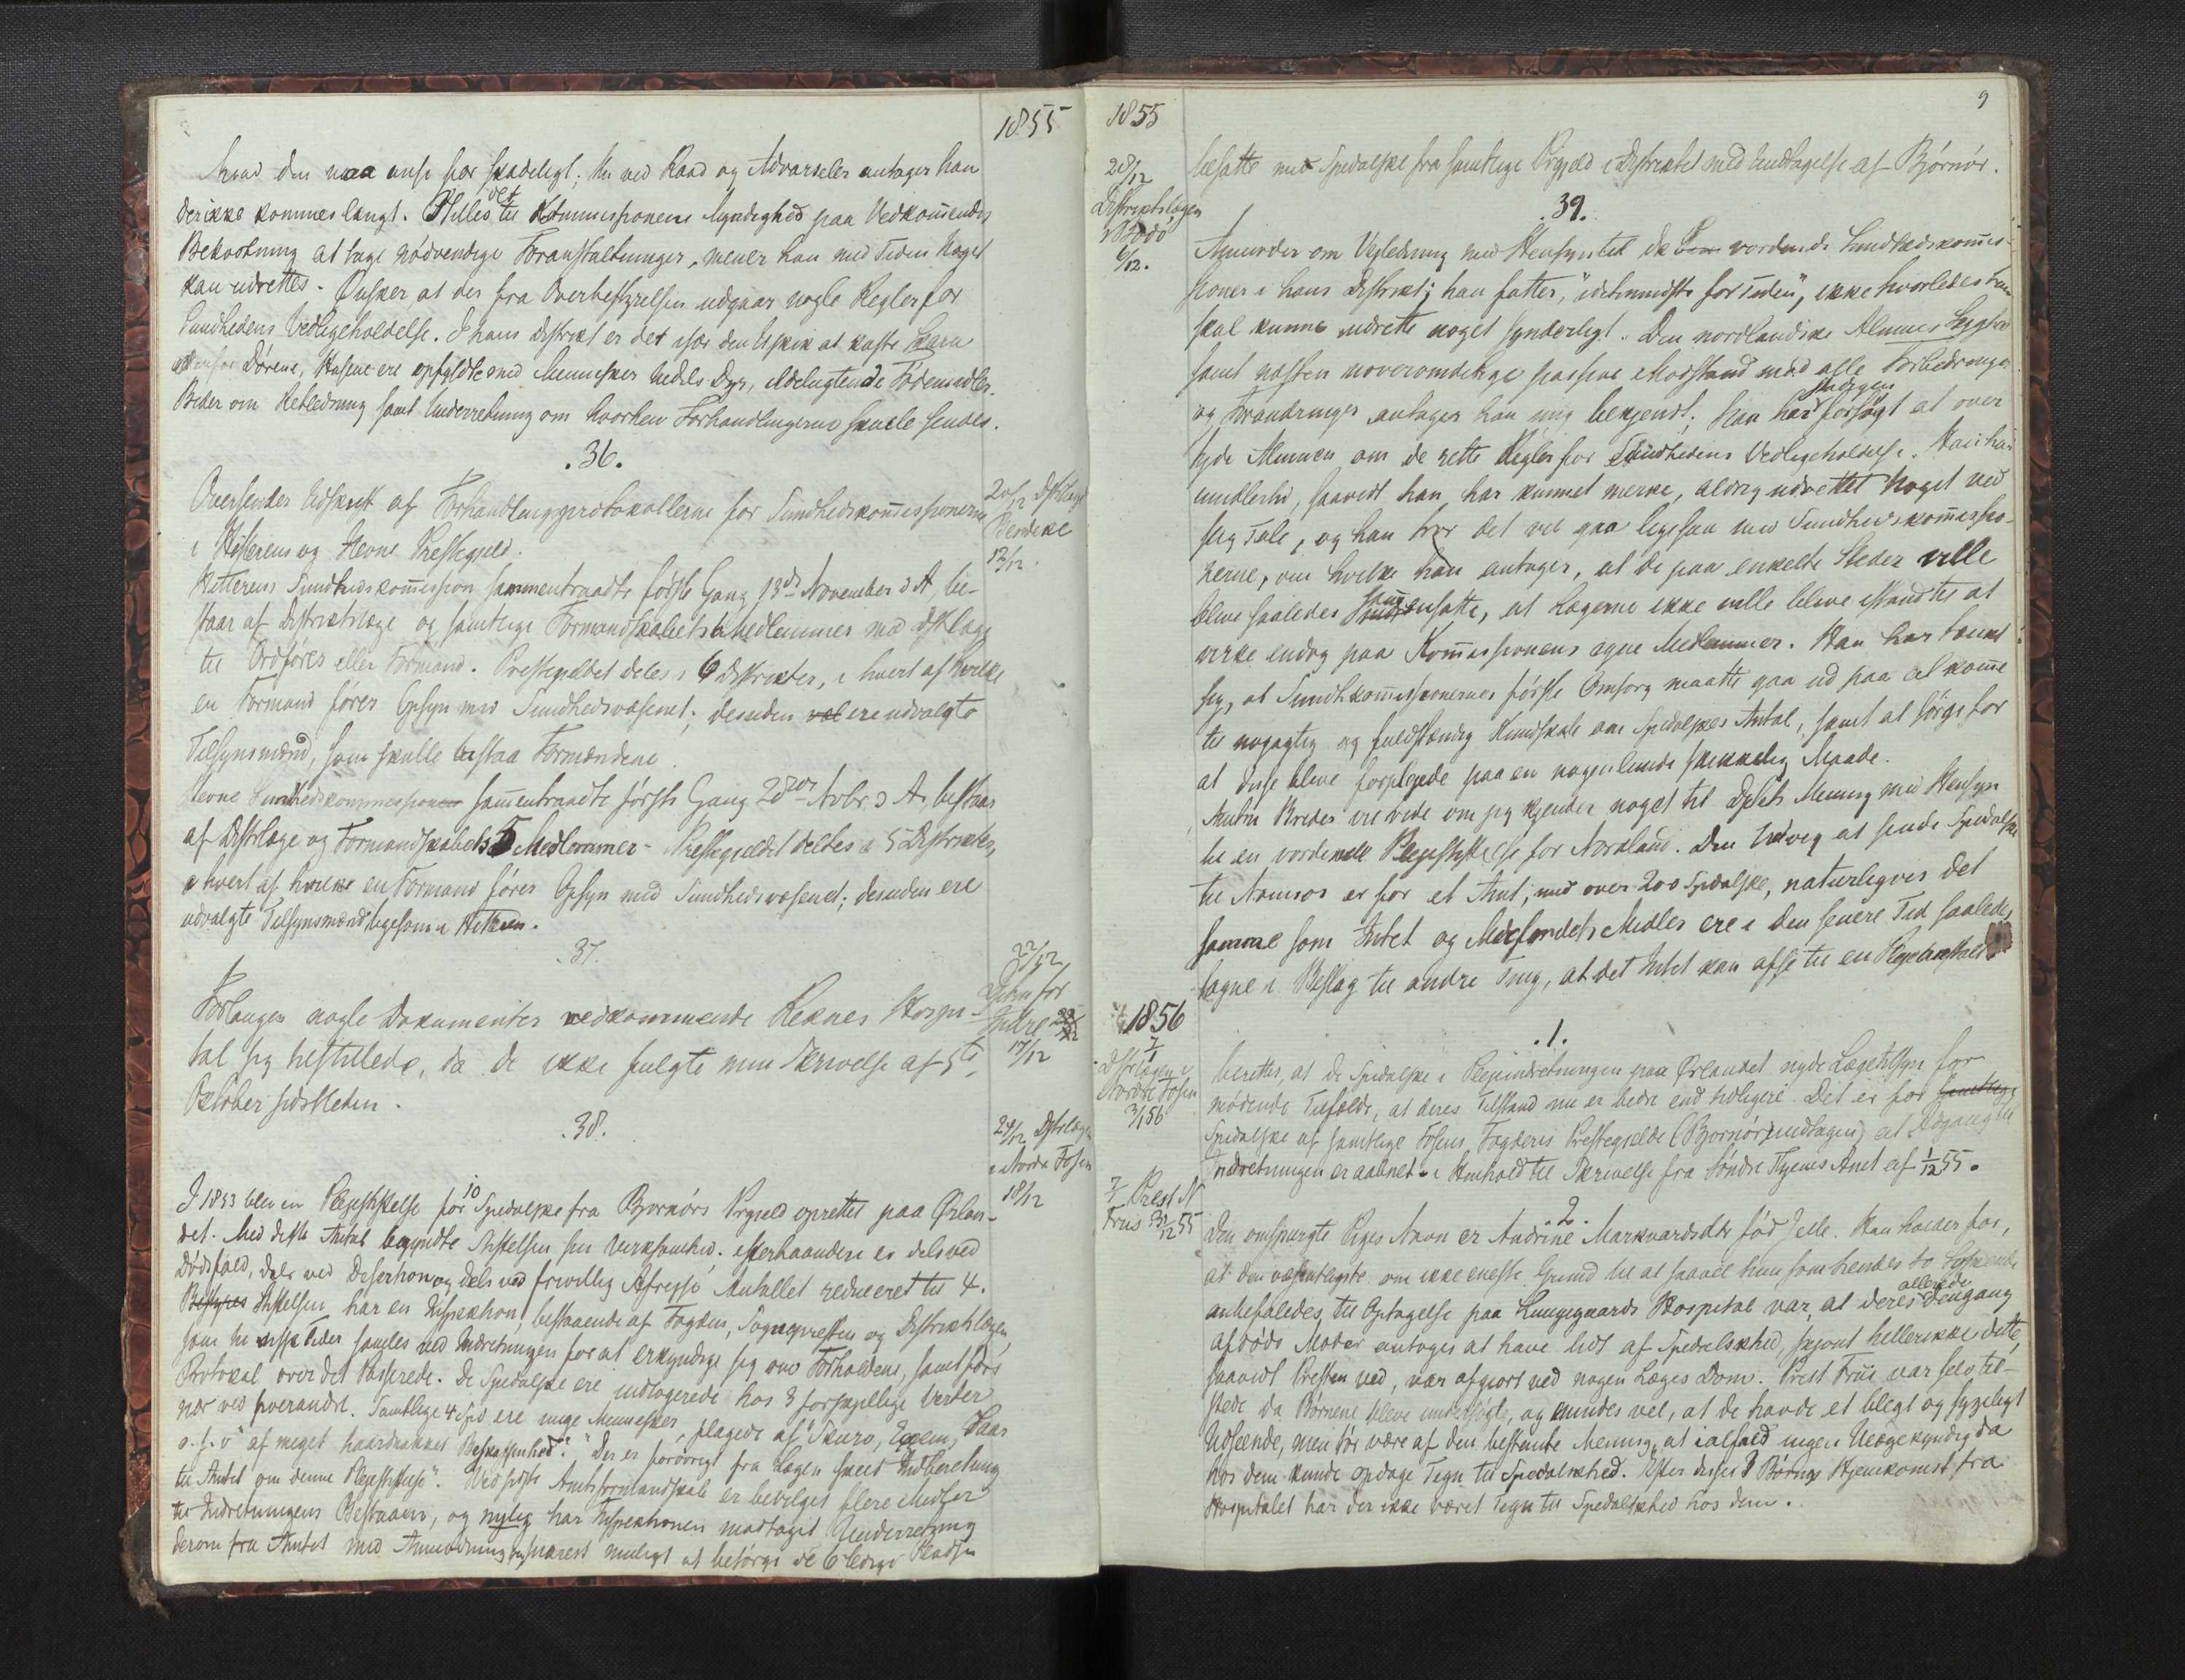 1855
hvad den maa anse for skadeligt; Nu ved Raad og Advarseler antager han
der ikke kommes langt. Stilles det til Kommissionens Myndighed paa Vedkommendes
Bekostning at tage nødvendige Foranstaltninger, mener han med Tiden Noget
kan udrettes. Ønsker at der fra Overbestyrelsen udgaar nogle Regler for
Sundhedens Vedligeholdelse. I hans Distrikt er det især den Uskik at kaste Skarn
udenfor Dørene, Husene ere opfyldte med Mennesker tildels Dyr, ildelugtende Fødemidler.
Beder om Veiledning samt Underretning om hvorhen Forhandlingerne skulle sendes.
.36.
20/12 Dstrlæge
12/12.
Oversender Udskrift af Forhandlingsprotokollerne for Sundhedskommissionerne
i Hitterens og Hevne Prestegjeld.
Hitterens Sundhedskommission sammentraadte første Gang 13de November d A, be-
staar af Distriktslæge og samtlige Formandskabets 6 Medlemmer med Dstrlæge
til Ordfører eller Formand. Prestegjeldet deles i 6 Distrikter, i hvert af hvilke
en Formand fører Opsyn med Sundhedsvæsenet; desuden val ere udvalgte
Tilsynsmænd, som skulle bistaa Formændene.
Hevne Sundhedskommission sammentraadte første Gang 28de Novbr. d A. bestaar
af Dstrlæge og Formandskabets 5 Medlemmer - Prestegjeldet deltes i 5 Distrikter,
i hvert af hvilke en Formand fører Opsyn med Sundhedsvæsenet; desuden ere
udvalgte Tilsynsmænd ligesom i Hitteren.
.37.
22/12
17/12
Forlanger nogle Dokumenter vedkommende Reknes Hospi-
tal sig tilstillede, da de ikke fulgte min Skrivelse af 5te
Oktober sidstleden.
.38.
24/12 Dstrlægen
i Nordre Fosen
18/12
I 1853 blev en Pleiestiftelse for 10 Spedalske fra Bjørnørs Prgjeld oprettet paa Ørlan-
det. Med dette Antal begyndte Stiftelsen sin Virksomhed; efterhaanden er dels ved
Dødsfald, dels ved Desertion og dels ved frivillig Afreise Antallet reduceret til 4.
Bestyres Stiftelsen har en Inspektion, bestaaende af Fogden, Sognepresten og Distriktslægen,
som til visse Tider samles ved Indretningen for at erkyndige sig om Forholdene, samt føre
Protokol over det Passerede. De Spedalske ere indlogerede hos 3 forskjellige Verter
nær ved hverandre. Samtlige 4 Spd ere unge Mennesker, plagede af Skurv, Exem,
o.s.v "af meget haardnakket Beskaffenhed". "Der er forøvrigt fra Lægen skeet Indberetning
til Amtet om denne Pleiestiftelse". Ved sidste Amtsformandskab er bevilget flere Midler
til Indretningens Bestaaen, og nylig har Inspektionen modtaget Underretning
derom fra Amtet med Anmodning om snarest muligt at besørge de 6 ledige Pladse
9
1855
besatte med Spedalske fra samtlige Prgjeld i Distriktet med Undtagelse af Bjørnør.
.39.
28/12
Distriktslægen
i Bodø
6/12.
Anmoder om Veiledning med Hensyn til de vordende Sundhedskommis-
sioner i hans Distrikt; han fatter, "idetmindste for Tiden", ikke hvorledes han
skal kunne udrette noget synderligt. Den nordlandske Almues
samt næsten uovervindelige passive Modstand mod alle Forbedringer
og Forandringer antager han mig bekjendt; han har stedigen forsøgt at over
tyde Almuen om de rette Regler for Sundhedens Vedligeholdelse. Han har
imidlertid, saavidt han har kunnet merke, aldrig udrettet Noget ved
sig Tale, og han tror det vil gaa ligesaa med Sundhedskommissio-
nerne, om hvilke han antager, at de paa enkelte Steder ville
blive saaledes sammensatte, at Lægerne ikke ville blive istand til at
virke endog paa Kommissionens egne Medlemmer. Han har tænkt
sig, at Sundhkommissionernes første Omsorg maatte gaa ud paa at komme
til nøiagtig og fuldstændig Kundskab om Spedalskes Antal, samt at sørge for
at disse bleve forpleiede paa en nogenlunde skikkelig Maade.
vil vide om jeg kjender noget til Dpts Mening med Hensyn
til en vordende Pleiestiftelse for Nordland. Den Udvei at sende Spedalske
til Namsos er for et Amt, med over 200 Spedalske, naturligvis det
samme som Intet og Medicinalfondets Midler ere i den senere Tid saaledes
tagne i Beslag til andre Ting, at det Intet kan afse til en Pleieanstalt
1856
.1.
7/1
Dstrlægen i
Nordre Fosen
3/1 56
beretter, at de Spedalske i Pleieindretningen paa Ørlandet nyde Lægetilsyn for
mødende Tilfælde, at deres Tilstand nu er bedre end tidligere. Det er for samtlige
Spedalske af samtlige Fosens Fogderis Prestegjelde (Bjørnør undtagen) at Adgang til
Indretningen er aabnet i Henhold til Skrivelse fra Søndre Thjems Amt af 1/12 55.
.2.
7/1 Prest N
Friis 31/12 55
Den omspurgte Piges Navn er Andrine Markvardsdtr født Jelle. Han holder for,
at den væsentligste om ikke eneste Grund til at saavel hun som hendes to Søskende
anbefaledes til Optagelse paa Lungegaards Hospital var, at deres allerede dengang
afdøde Moder antoges at have lidt af Spedalskhed, skjønt hellerikke dette,
saavidt Presten ved, var afgjort ved nogen Læges Dom. Prest Friis var selv til-
stede da Børnene bleve undersøgte, og mindes vel, at de havde et blegt og sygeligt
Udseende, men tør være af den bestemte Mening, at ialfald ingen Ulægekyndig da
hos dem kunde opdage Tegn til Spedalskhed. Efter disse 3 Børns Hjemkomst fra
Hospitalet har der ikke været Tegn til Spedalskhed hos dem.